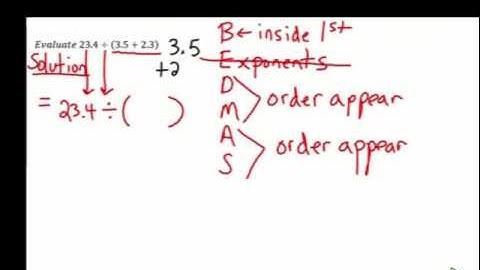 Evaluate 23.4 ÷ (3.5 + 2.3)
Solution
= 23.4 ÷ ( )
3.5
+2
B ← inside 1st
E xponents
D
M
order appear
A
S
order appear